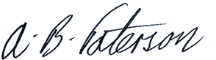 A. B. Paterson